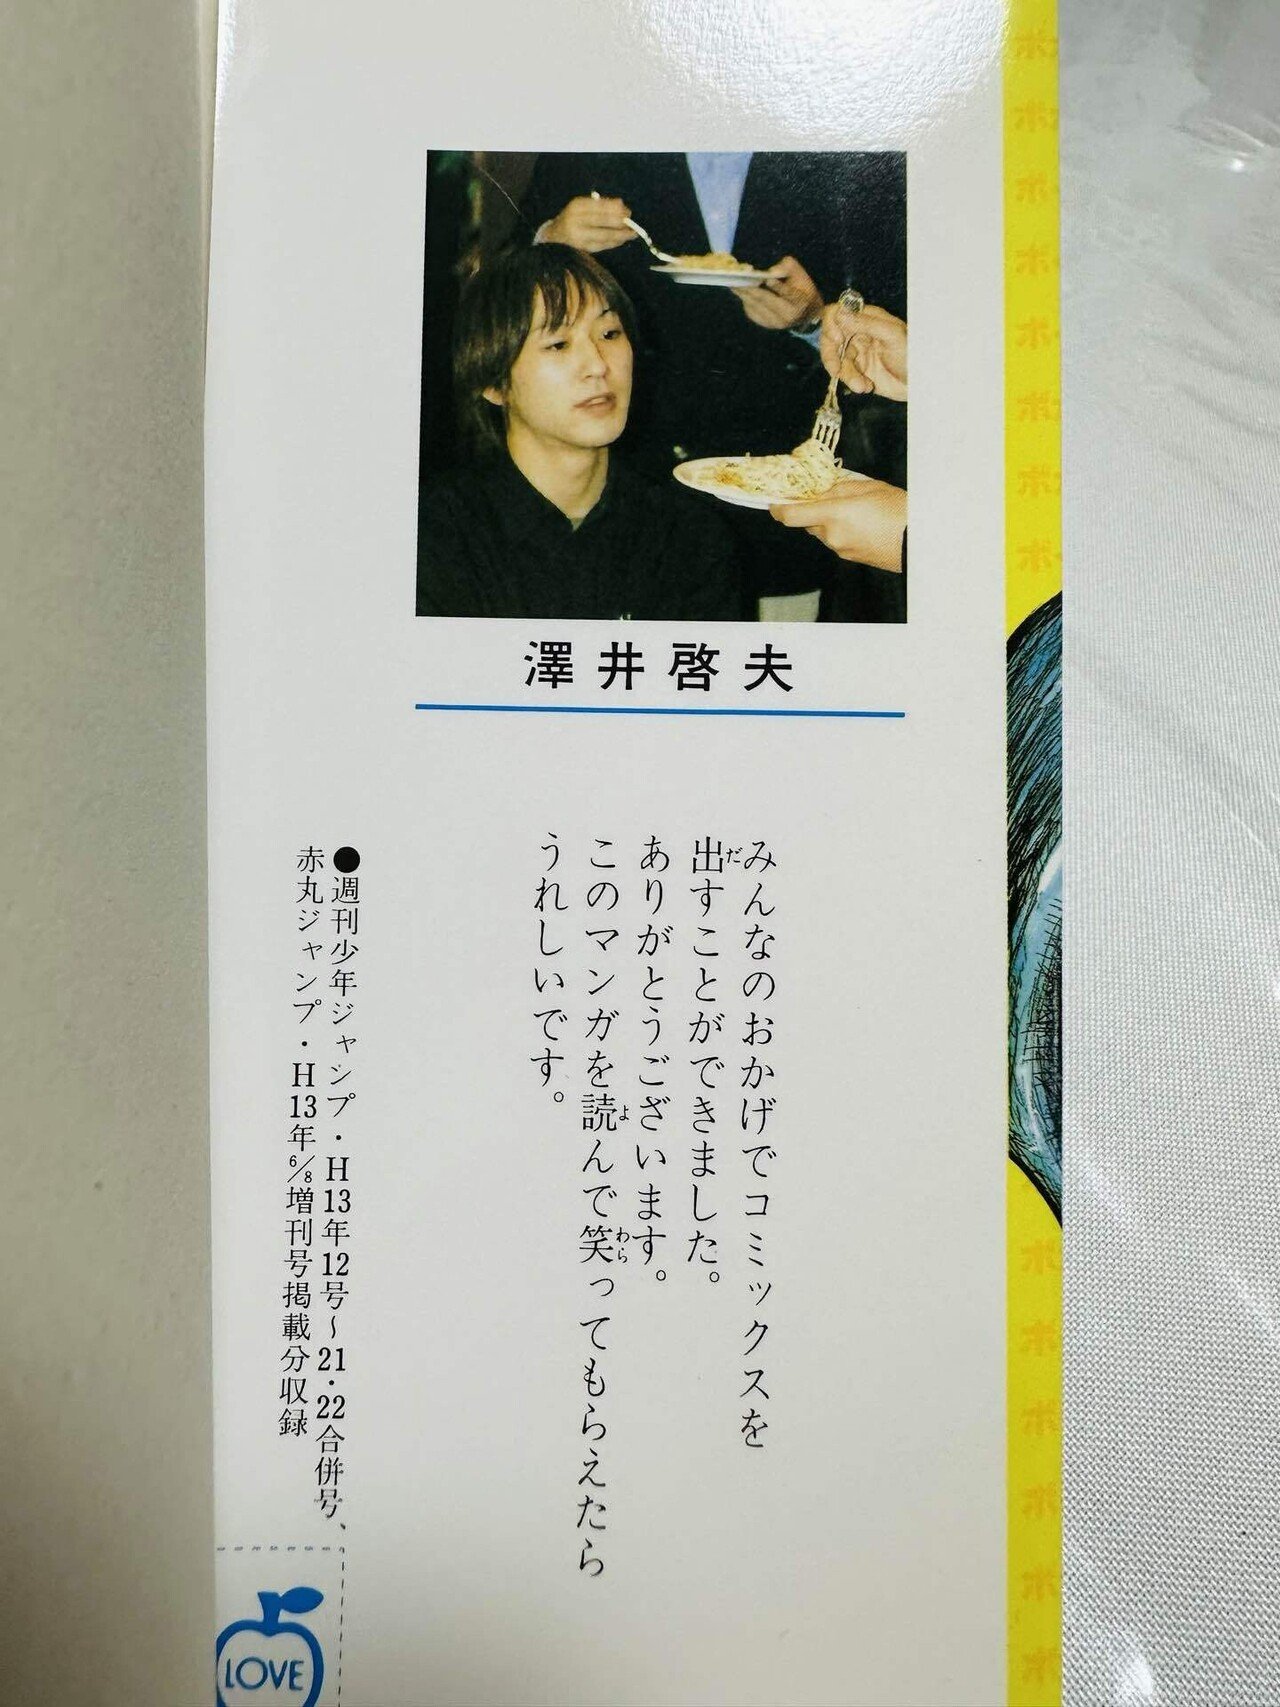 澤井啓夫
みんなのおかげでコミックスを
出すことができました。
ありがとうございます。
このマンガを読んで笑ってもらえたら
うれしいです。
だ
よ
わら
●週刊少年ジャンプ・H13年12号~21・22合併号、
赤丸ジャンプ・H13年6/8増刊号掲載分収録
LOVE